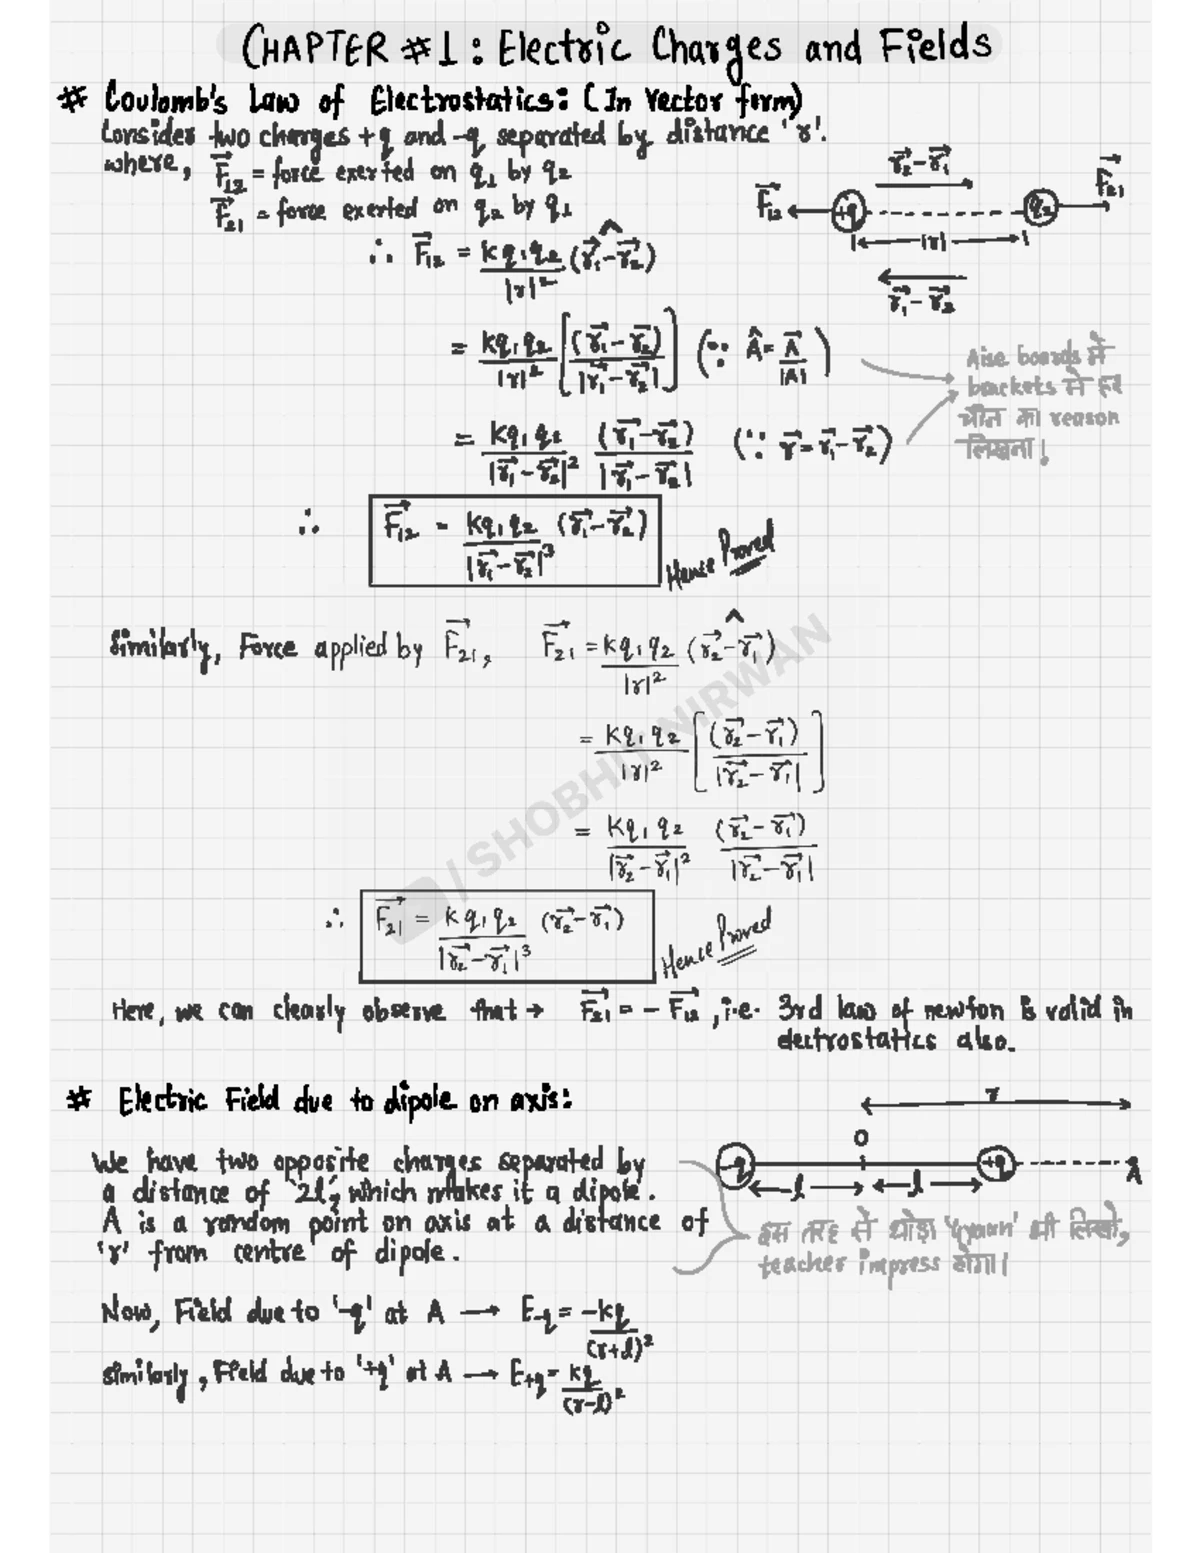 CHAPTER #1 : Electric Charges and Fields
# Coulomb's Law of Electrostatics: (In Vector form)
Consider two charges +q and -q separated by distance 'r'.
where, F⃗₁₂ = force exerted on q₁ by q₂
F⃗₂₁ = force exerted on q₂ by q₁
r⃗₂-r⃗₁
F⃗₁₂ +q q₂ F⃗₂₁
|r|
r⃗₁-r⃗₂
∴ F⃗₁₂ = kq₁q₂/|r|² (r⃗₁-r⃗₂)^
= kq₁q₂/|r|² [(r⃗₁-r⃗₂)/|r⃗₁-r⃗₂|] (∵ Â = A⃗/|A|)
= kq₁q₂/|r⃗₁-r⃗₂|² (r⃗₁-r⃗₂)/|r⃗₁-r⃗₂| (∵ r⃗ = r⃗₁-r⃗₂)
Aise boards में
brackets में हर
चीज का reason
लिखना!
∴ F⃗₁₂ = kq₁q₂/|r⃗₁-r⃗₂|³ (r⃗₁-r⃗₂) Hence Proved
Similarly, Force applied by F⃗₂₁, F⃗₂₁ = kq₁q₂/|r|² (r⃗₂-r⃗₁)^
= kq₁q₂/|r|² [(r⃗₂-r⃗₁)/|r⃗₂-r⃗₁|]
= kq₁q₂/|r⃗₂-r⃗₁|² (r⃗₂-r⃗₁)/|r⃗₂-r⃗₁|
∴ F⃗₂₁ = kq₁q₂/|r⃗₂-r⃗₁|³ (r⃗₂-r⃗₁) Hence Proved
/ SHOBHIT NIRWAN
Here, we can clearly observe that → F⃗₂₁ = - F⃗₁₂, i.e. 3rd law of newton is valid in
electrostatics also.
# Electric Field due to dipole on axis:
r
O
-q +q A
l l
We have two opposite charges separated by
a distance of '2l', which makes it a dipole.
A is a random point on axis at a distance of
'r' from centre of dipole.
इस तरह से थोड़ा 'gyaan' भी लिखो,
teacher impress होगा।
Now, Field due to '-q' at A → E₋q = -kq/(r+l)²
similarly, Field due to '+q' at A → E₊q = kq/(r-l)²